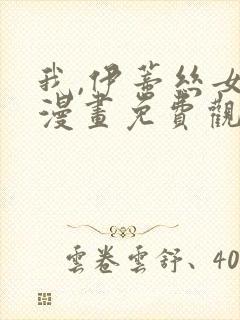 我,伊蒂絲女
漫畫免費觀
雲卷雲舒、40